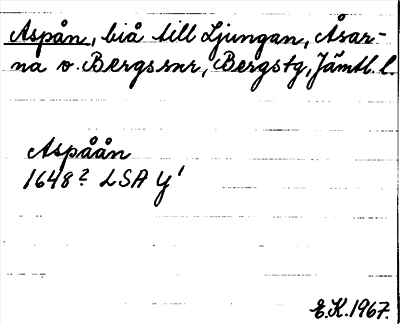 Aspån, biå till Ljungan, Åsar-
na o. Bergs snr, Bergs tg, Jämtl. l.
Aspåån
1648? LSA Y¹
E.K. 1967.